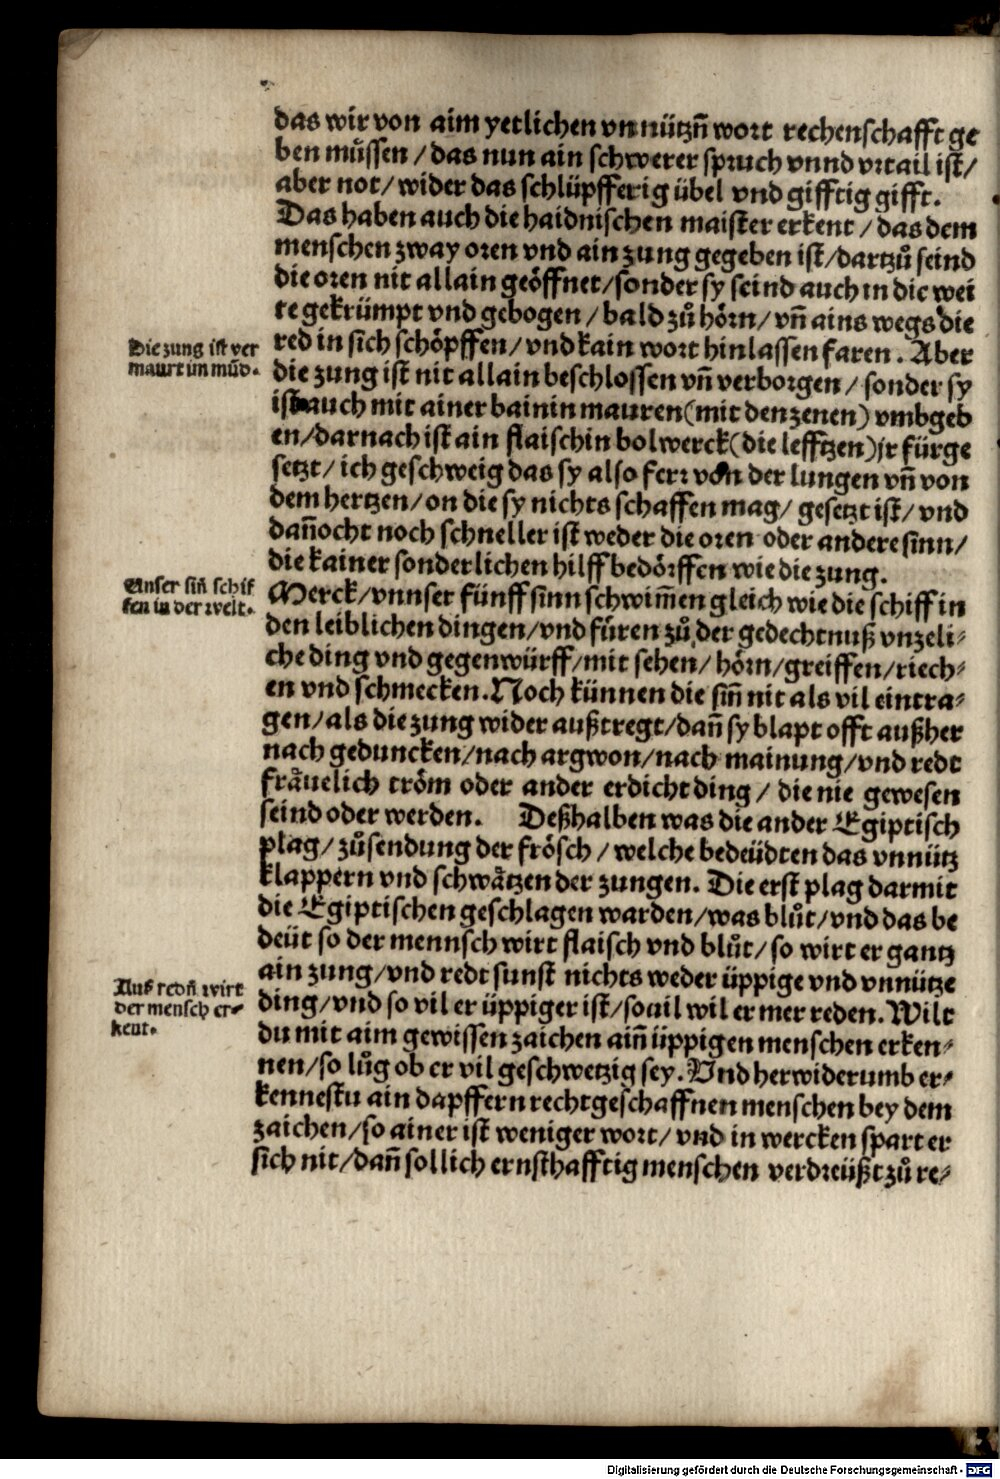 das wir von aim yetlichen vnnützn̄ wort rechenschafft ge
ben müssen / das nun ain schwerer spruch vnnd vrtail ist /
aber not / wider das schlüpfferig übel vnd gifftig gifft.
Das haben auch die haidnischen maister erkent / das dem
menschen zway oren vnd ain zung gegeben ist / dartzů seind
die oren nit allain geöffnet / sonder sy seind auch in die wei
te gekrümpt vnd gebogen / bald zů hörn / vn̄ ains wegs die
Die zung ist ver
maurt im mūd.
red in sich schöpffen / vnd kain wort hinlassen faren. Aber
die zung ist nit allain beschlossen vn̄ verborgen / sonder sy
ist auch mit ainer bainin mauren (mit den zenen) vmbgeb
en / darnach ist ain flaischin bolwerck (die lefftzen) jr fürge
setzt / ich geschweig das sy also ferr von der lungen vn̄ von
dem hertzen / on die sy nichts schaffen mag / gesetzt ist / vnd
dan̄ocht noch schneller ist weder die oren oder andere sinn /
die kainer sonderlichen hilff bedörffen wie die zung.
Unser sin̄ schif
fen in der welt.
Merck / vnnser fünff sinn schwim̄en gleich wie die schiff in
den leiblichen dingen / vnd füren zů der gedechtnuß vnzeli-
che ding vnd gegenwürff / mit sehen / hörn / greiffen / riech-
en vnd schmecken. Noch künnen die sin̄ nit als vil eintra-
gen / als die zung wider außtregt / dan̄ sy blapt offt außher
nach geduncken / nach argwon / nach mainung / vnd redt
fräuelich tröm oder ander erdicht ding / die nie gewesen
seind oder werden. Deßhalben was die ander Egiptisch
plag / zůsendung der frösch / welche bedeüdten das vnnütz
klappern vnd schwätzen der zungen. Die erst plag darmit
die Egiptischen geschlagen warden / was blůt / vnd das be
deüt so der mennsch wirt flaisch vnd blůt / so wirt er gantz
ain zung / vnd redt sunst nichts weder üppige vnd vnnütze
Auß redn̄ wirt
der mensch er-
kent.
ding / vnd so vil er üppiger ist / souil wil er mer reden. Wilt
du mit aim gewissen zaichen ain̄ üppigen menschen erken-
nen / so lůg ob er vil geschwetzig sey. Vnd herwiderumb er-
kennestu ain dapffern rechtgeschaffnen menschen bey dem
zaichen / so ainer ist weniger wort / vnd in wercken spart er
sich nit / dan̄ sollich ernsthafftig menschen verdreüßt zů re-
Digitalisierung gefördert durch die Deutsche Forschungsgemeinschaft - DFG